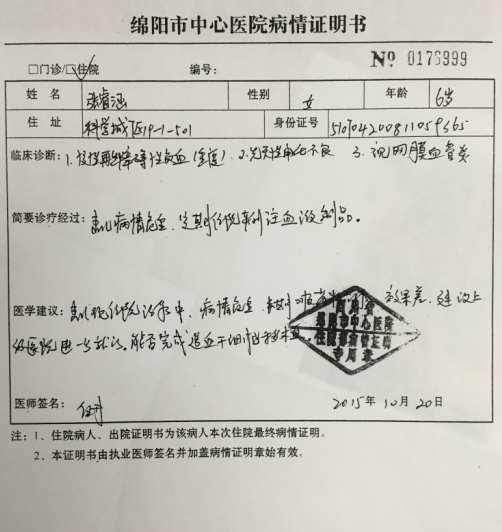 绵阳市中心医院病情证明书
Nº 0176999
□门诊/☑住院 编号:
姓 名 张睿涵 性别 女 年龄 6岁
住 址 科学城 19-1-501 身份证号
临床诊断: 1. 再生障碍性贫血 2. 不良 3. 视网膜血管炎
简要诊疗经过: 患儿病情危重、定期住院来科注血液制品。
医学建议: 患儿现住院治疗中,病情危重, 效果差,建议上
级医院进一步就诊。能否完成造血干细胞移植
四川省
绵阳市中心医院
住院部病情证明
专用章
医师签名: 2015年10月20日
注: 1、住院病人、出院证明书为该病人本次住院最终病情证明。
2、本证明书由执业医师签名并加盖病情证明章始有效。